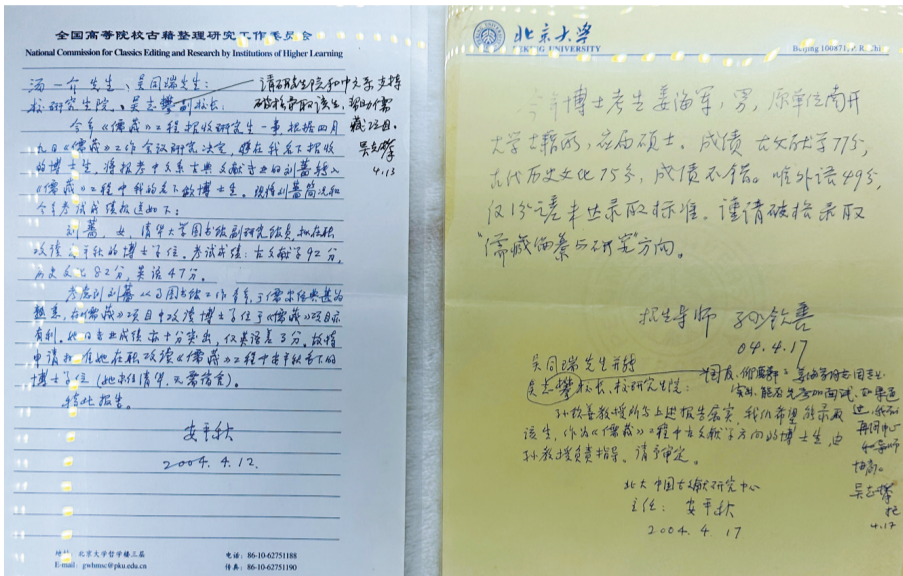 全国高等院校古籍整理研究工作委员会
National Commission for Classics Editing and Research by Institutions of Higher Learning
汤一介先生、吴同瑞先生:
校研究生院、吴志攀副校长:
请研究生院和中文系支持
破格录取该生,帮助儒
藏项目。
吴志攀
4.13
今年《儒藏》工程招收研究生一事,根据四月
九日《儒藏》工作会议研究决定,将在我名下招收
的博士生,将报考中文系古典文献专业的刘蔷转入
《儒藏》工程中我的名下做博士生。现将刘蔷简况和
今年考试成绩报送如下:
刘蔷,女,清华大学图书馆副研究馆员,拟在职
攻读安平秋的博士学位。考试成绩:古文献学92分,
历史文化82分,英语47分。
考虑到刘蔷从事图书馆工作多年,于儒家经典甚为
熟悉,在《儒藏》项目中攻读博士学位于《儒藏》项目亦
有利。她的专业成绩亦十分突出,仅英语差3分。故特
申请批准她在职攻读《儒藏》工程中安平秋名下的
博士学位(她家住清华,不需宿舍)。
特此报告。
安平秋
2004.4.12.
地址:北京大学哲学楼三层
电话:86-10-62751188
E-mail:gwhmsc@pku.edu.cn
传真:86-10-62751190
北京大学
PEKING UNIVERSITY
Beijing 100871, P. R. Chi
今年博士考生姜海军,男,原单位南开
大学古籍所,应届硕士。成绩:古文献学77分,
古代历史文化75分,成绩不错。唯外语49分,
仅1分之差未达录取标准。谨请破格录取
“儒藏编纂与研究”方向。
招生导师 孙钦善
04.4.17
吴同瑞先生并转
吴志攀校长、校研究生院:
孙钦善教授所写上述报告属实,我们希望能录取
该生,作为《儒藏》工程中古文献学方向的博士生,由
孙教授负责指导。请审定。
北大中国古文献研究中心
主任:安平秋
2004.4.17
再同中心
和导师
协商。
吴志攀
4.17